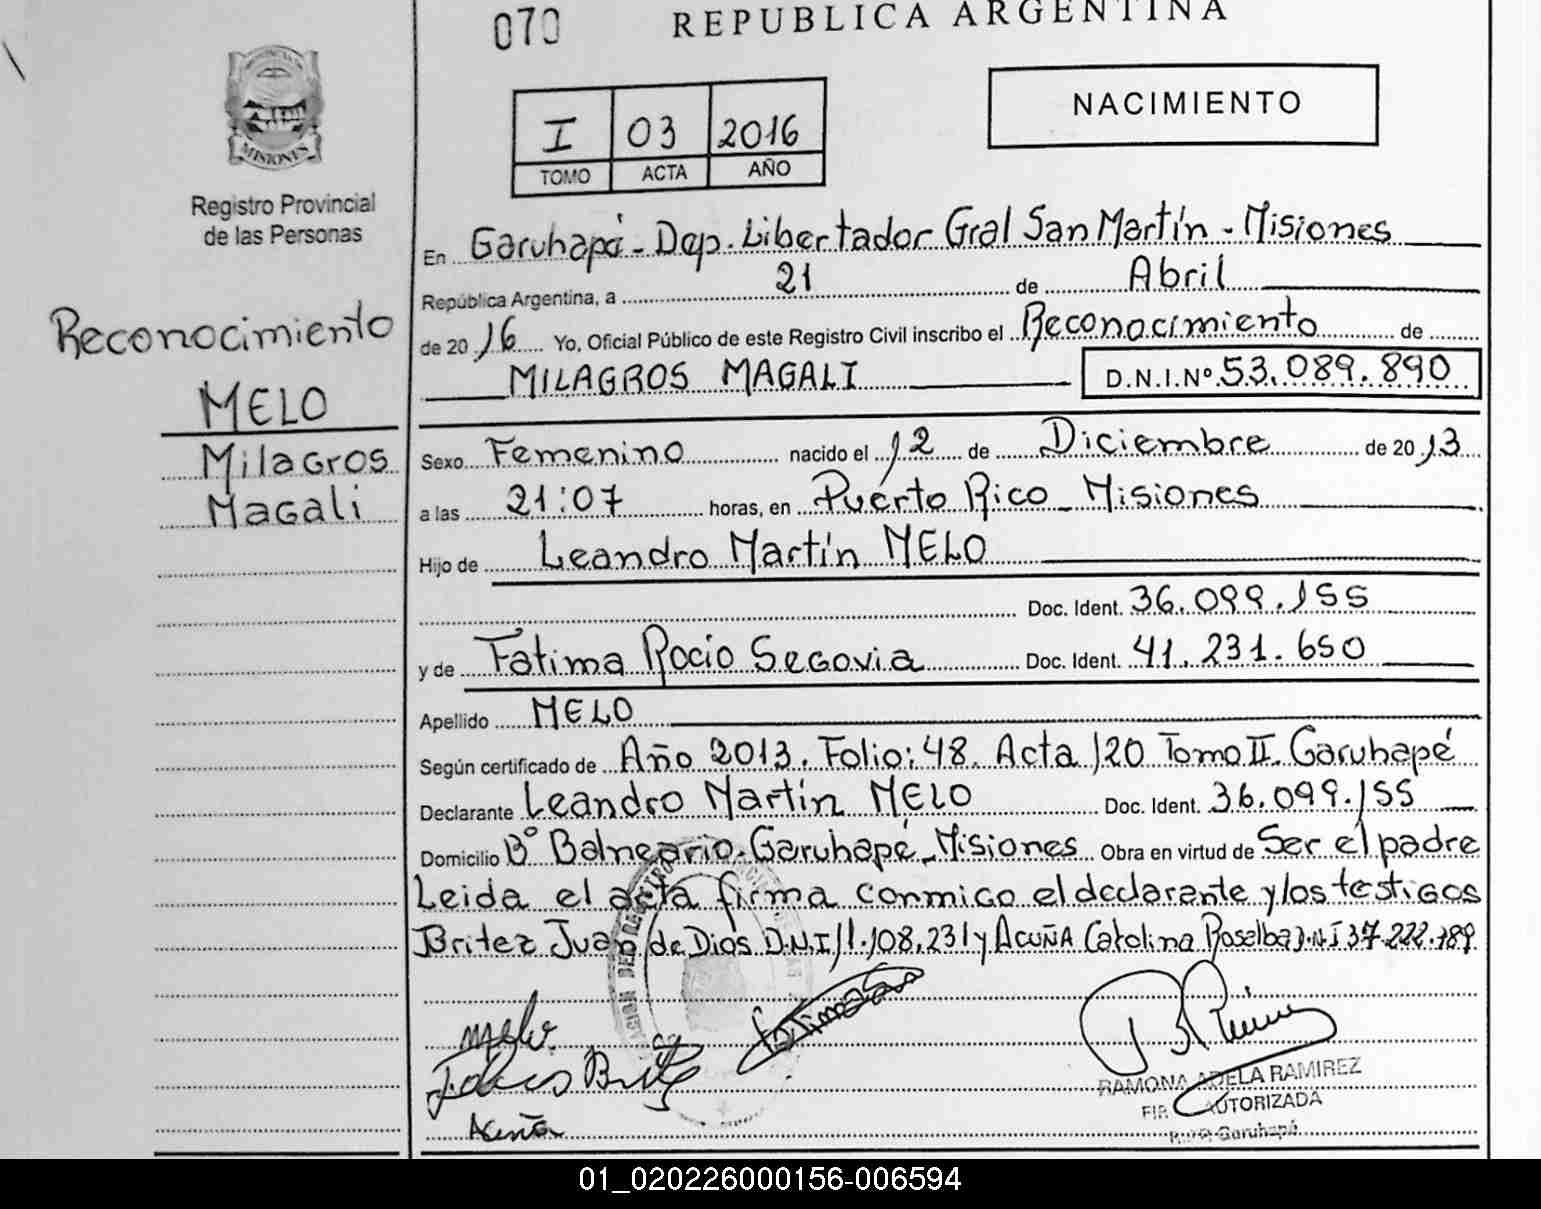 070
REPUBLICA ARGENTINA
MISIONES
Registro Provincial
de las Personas
I 03 2016
TOMO ACTA AÑO
NACIMIENTO
En Garuhapé - Dep. Libertador Gral San Martín - Misiones
República Argentina, a 21 de Abril
de 2016 Yo, Oficial Público de este Registro Civil inscribo el Reconocimiento de
MILAGROS MAGALI D.N.I.Nº 53.089.890
Reconocimiento
MELO
Milagros
Magali
Sexo Femenino nacido el 12 de Diciembre de 2013
a las 21:07 horas, en Puerto Rico - Misiones
Hijo de Leandro Martín MELO
Doc. Ident. 36.099.155
y de Fatima Rocio Segovia Doc. Ident. 41.231.650
Apellido MELO
Según certificado de Año 2013. Folio: 48. Acta 120 Tomo II. Garuhapé
Declarante Leandro Martín MELO Doc. Ident. 36.099.155
Domicilio Bº Balneario - Garuhapé - Misiones Obra en virtud de Ser el padre
Leida el acta firma conmigo el declarante y los testigos
Britez Juan de Dios D.N.I 11.108.231 y ACUÑA Catalina Roselba D.N.I 37.222.789
Melo
Acuña
RAMONA ADELA RAMIREZ
AUTORIZADA
Garuhapé
01_020226000156-006594